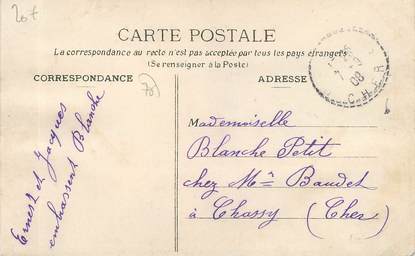 20+
CARTE POSTALE
La correspondance au recto n'est pas acceptée par tous les pays étrangers
(Se renseigner à la Poste)
CORRESPONDANCE
ADRESSE
70
CHER
08
Ernest et Jacques
embrassent Blanche
Mademoiselle
Blanche Petit
chez Mme Baudet
à Chassy (Cher)